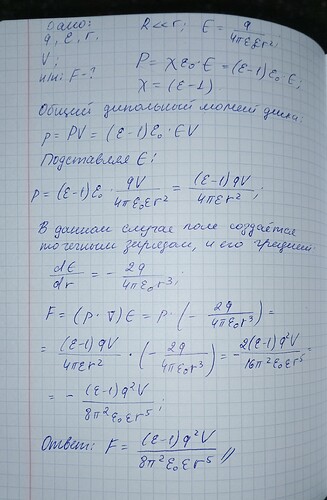 Дано:
q, ε, r.
V;
н/и: F-?
R<<r; E = q/4πε₀εr²;
P = χε₀·E = (ε-1)ε₀·E;
χ = (ε-1).
Общий дипольный момент диска:
p = PV = (ε-1)ε₀·EV
Подставляя E:
p = (ε-1)ε₀ · qV/4πε₀εr² = (ε-1)qV/4πεr²;
В данном случае поле создаётся
точечным зарядом, и его градиент:
dE/dr = - 2q/4πε₀r³;
F = (p·∇)E = p·(- 2q/4πε₀r³) =
= (ε-1)qV/4πεr² · (- 2q/4πε₀r³) = - 2(ε-1)q²V/16π²ε₀εr⁵ =
= - (ε-1)q²V/8π²ε₀εr⁵;
Ответ: F = (ε-1)q²V/8π²ε₀εr⁵ //